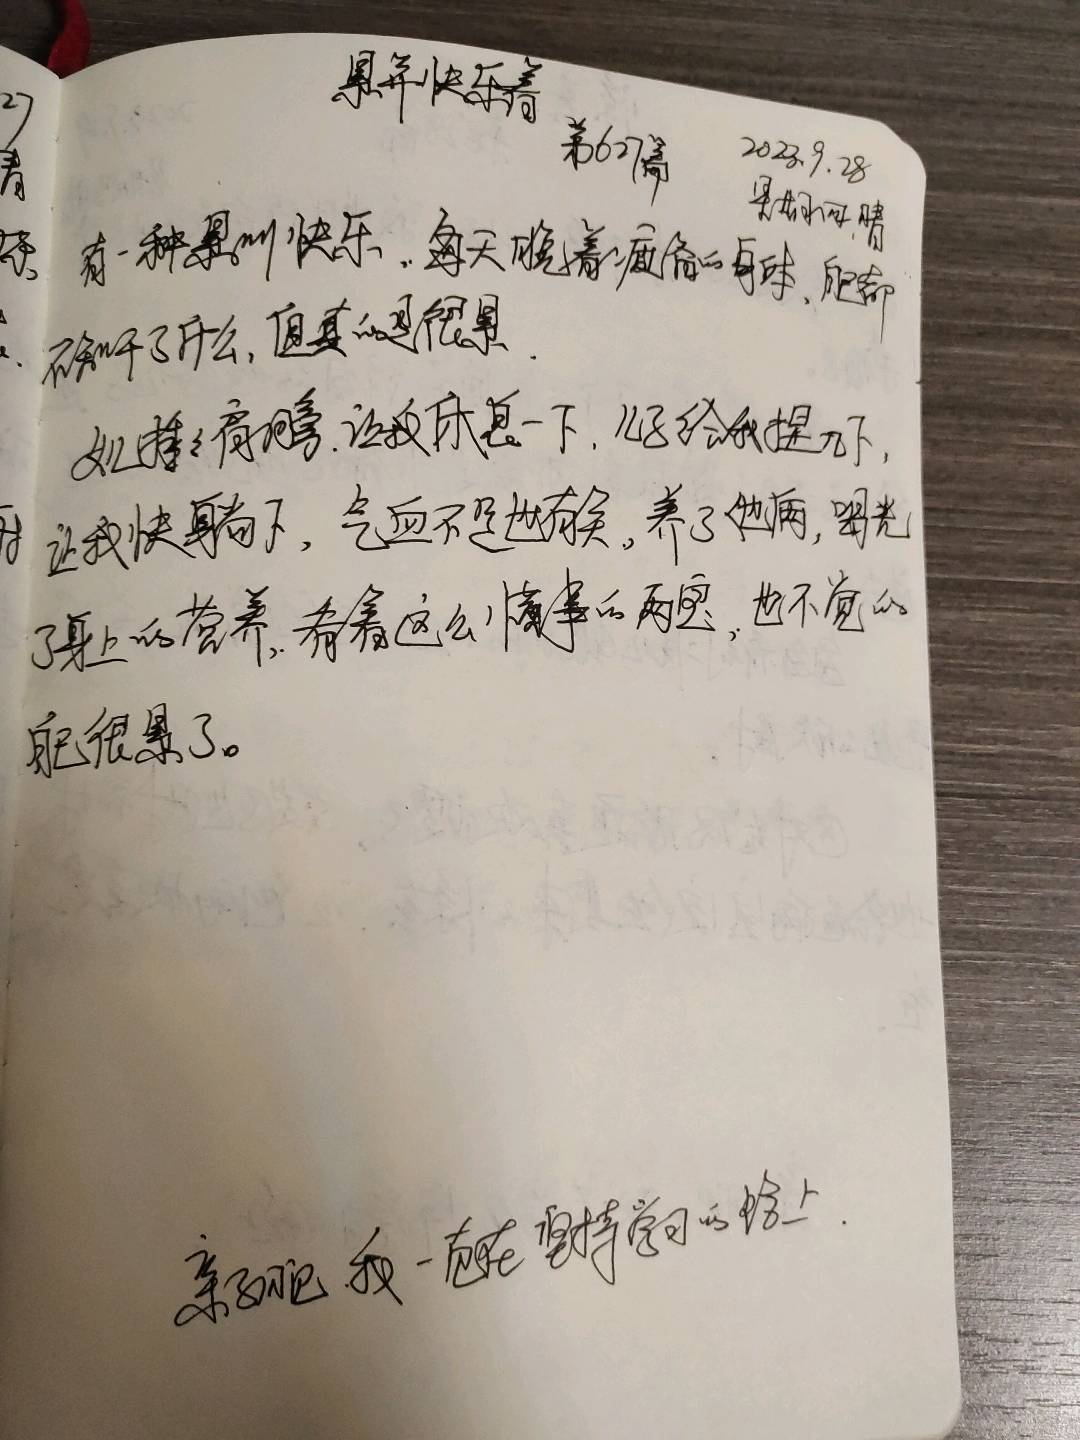 累并快乐着
第627篇
2022.9.28
晴
有一种累叫快乐。每天拖着疲倦的身体、自己都
不知干了什么,但真的是很累.
女儿捶捶肩膀.让我休息一下,儿子给我捏几下,
让我快躺下,气血不足也有关。养了他俩,喝光
了身上的营养,看着这么懂事的两宝,也不觉的
自己很累了。
亲子日记 我一直在坚持学习的路上.